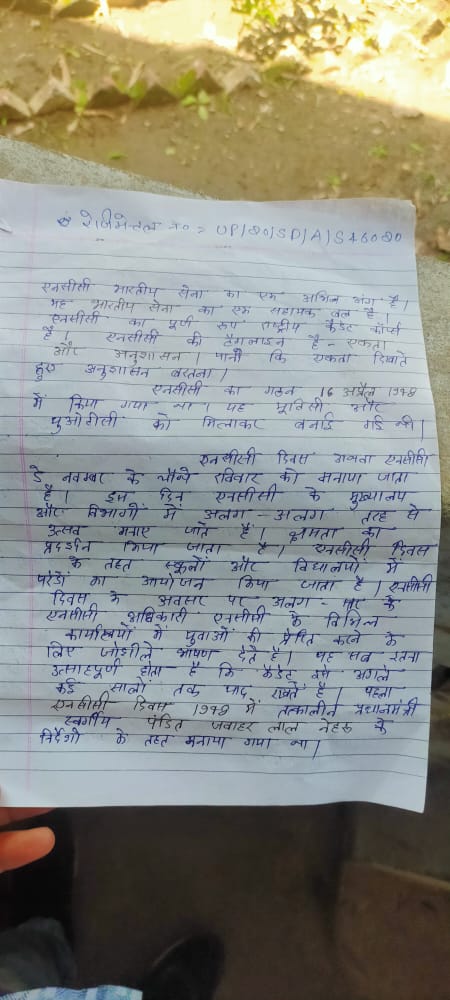 रेजिमेन्टल no = UP/20/SD/A/S46020
एनसीसी भारतीय सेना का एक अभिन्न अंग है।
यह भारतीय सेना का एक सहायक बल है।
एनसीसी का पूर्ण रूप राष्ट्रीय कैडेट कॉर्प्स
है। एनसीसी की टैगलाइन है - एकता
और अनुशासन। यानी कि एकता दिखाते
हुए अनुशासन बरतना।
एनसीसी का गठन 16 अप्रैल 1948
में किया गया था। यह यूटीसी और
यूओटीसी को मिलाकर बनाई गई थी।
एनसीसी दिवस अथवा एनसीसी
डे नवम्बर के चौथे रविवार को मनाया जाता
है। इस दिन एनसीसी के मुख्यालय
और विभागों में अलग-अलग तरह से
उत्सव मनाए जाते है। क्षमता का
प्रदर्शन किया जाता है। एनसीसी दिवस
के तहत स्कूलों और विद्यालयों में
परेडों का आयोजन किया जाता है। एनसीसी
दिवस के अवसर पर अलग- के
एनसीसी अधिकारी एनसीसी के विभिन्न
में युवाओं को प्रेरित करने के
लिए जोशीले भाषण देते है। यह सब इतना
उत्साहपूर्ण होता है कि कैडेट इसे अगले
कई सालों तक याद रखते है। पहला
एनसीसी दिवस 1948 में तत्कालीन प्रधानमंत्री
स्वर्गीय पंडित जवाहर लाल नेहरू के
निर्देशो के तहत मनाया गया था।